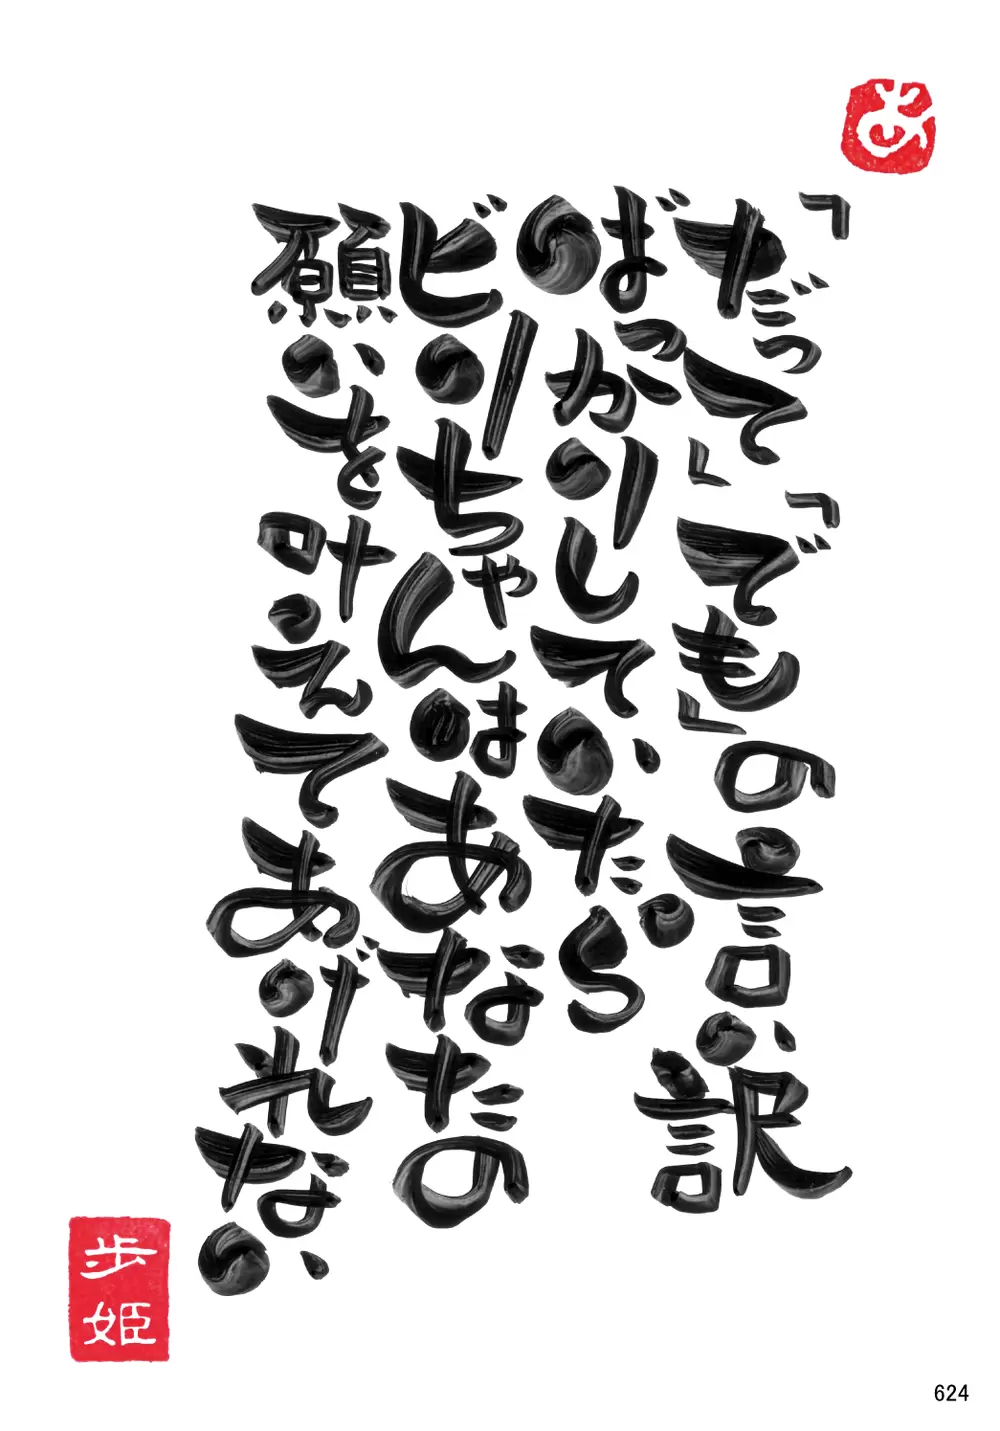 あ
「だって」「でも」の言い訳
ばっかりしているだから
ビリーちゃんはあなたの
願いを叶えてあげれない
歩姫
624